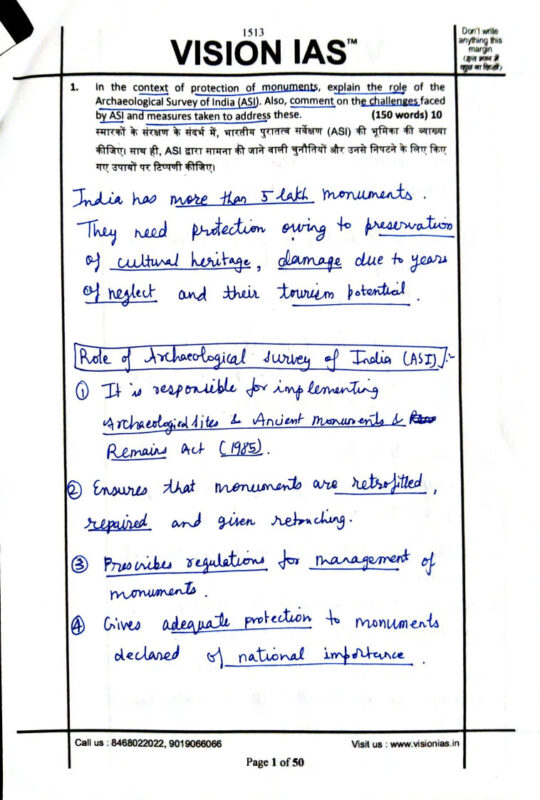 1513
VISION IAS™
Don't write
anything this
margin
1. In the context of protection of monuments, explain the role of the
Archaeological Survey of India (ASI). Also, comment on the challenges faced
by ASI and measures taken to address these. (150 words) 10
स्मारकों के संरक्षण के संदर्भ में, भारतीय पुरातत्व सर्वेक्षण (ASI) की भूमिका की व्याख्या
कीजिए। साथ ही, ASI द्वारा सामना की जाने वाली चुनौतियों और उनसे निपटने के लिए किए
गए उपायों पर टिप्पणी कीजिए।
India has more than 5 lakh monuments.
They need protection owing to preservation
of cultural heritage, damage due to years
of neglect and their tourism potential.
Role of Archaeological Survey of India (ASI):-
① It is responsible for implementing
Archaeological Sites & Ancient Monuments &
Remains Act (1985).
② Ensures that monuments are retrofitted,
repaired and given retouching.
③ Prescribes regulations for management of
monuments.
④ Gives adequate protection to monuments
declared of national importance.
Call us : 8468022022, 9019066066
Visit us : www.visionias.in
Page 1 of 50